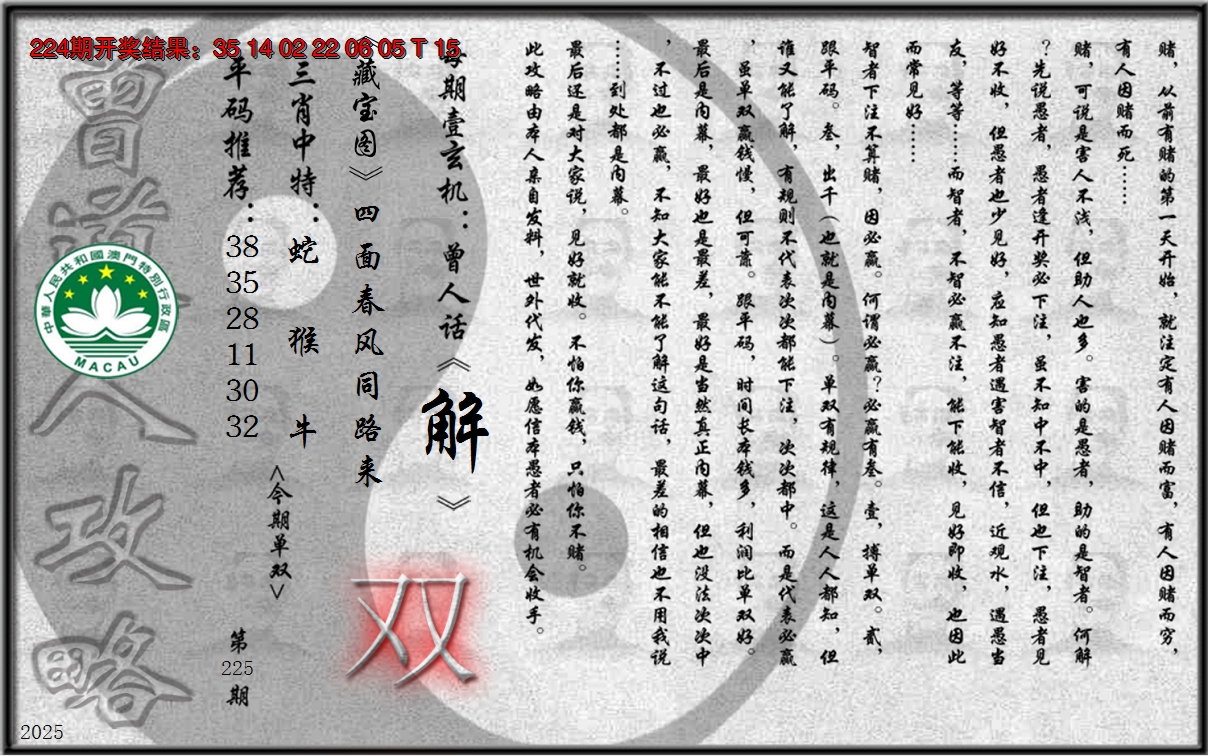 224期开奖结果：35 14 02 22 06 05 T 15
赌，从前有赌的第一天开始，就注定有人因赌而富，有人因赌而穷，
有人因赌而死……
赌，可说是害人不浅，但助人也多。害的是愚者，助的是智者。何解
？先说愚者，愚者逢开奖必下注，虽不知中不中，但也下注，愚者见
好不收，但愚者也少见好，应知愚者遇害智者不信，近观水，遇愚当
友，等等……而智者，不智必赢不注，能下能收，见好即收，也因此
而常见好……
智者下注不算赌，因必赢。何谓必赢？必赢有叁。壹，搏单双。贰，
跟平码。叁，出千（也就是内幕）。单双有规律，这是人人都知，但
谁又能了解，有规则不代表次次都能下注，次次都中。而是代表必赢
，虽单双赢钱慢，但可靠。跟平码，时间长本钱多，利润比单双好。
最后是内幕，最好也是最差，最好是当然真正内幕，但也没法次次中
，不过也必赢，不知大家能不能了解这句话，最差的相信也不用我说
……到处都是内幕。
最后还是对大家说，见好就收。不怕你赢钱，只怕你不赌。
此攻略由本人亲自发料，世外代发，如愿信本愚者必有机会收手。
每期壹玄机：曾人话《解》
《藏宝图》四面春风同路来
三肖中特：蛇 猴 牛
平码推荐：38 35 28 11 30 32
<今期单双>
双
第225期
曾道人攻略
中華人民共和國澳門特別行政區
MACAU
2025